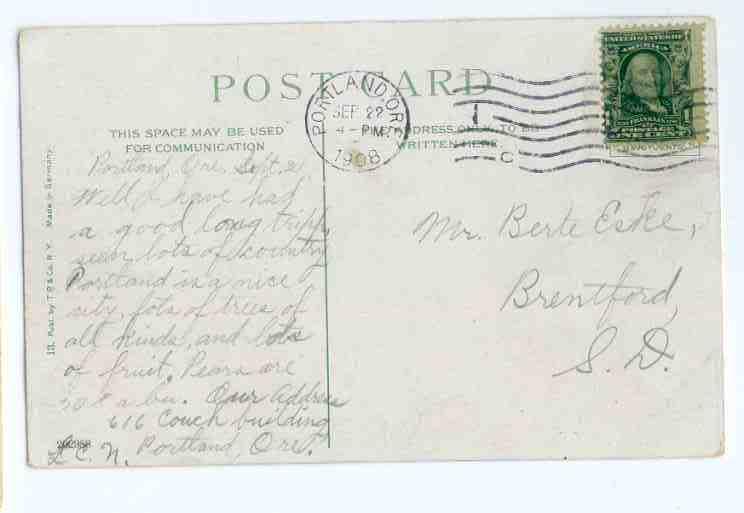 POST CARD
THIS SPACE MAY BE USED
FOR COMMUNICATION
ADDRESS ONLY TO BE
WRITTEN HERE
PORTLAND, OR
SEP 22
4- PM
1908
C
UNITED STATES OF
AMERICA
1
POSTAGE
ONE CENT
13. Pub. by T. P. & Co. N. Y. Made in Germany.
Portland, Ore. Sept. 21
Well I have had
a good long tripp,
seen lots of country
Portland is a nice
city, lots of trees of
all kinds, and lots
of fruit. Pears are
50¢ a bu. Our Address
616 Couch building
Portland, Ore.
L. C. N.
Mr. Berte Eske,
Brentford,
S. D.